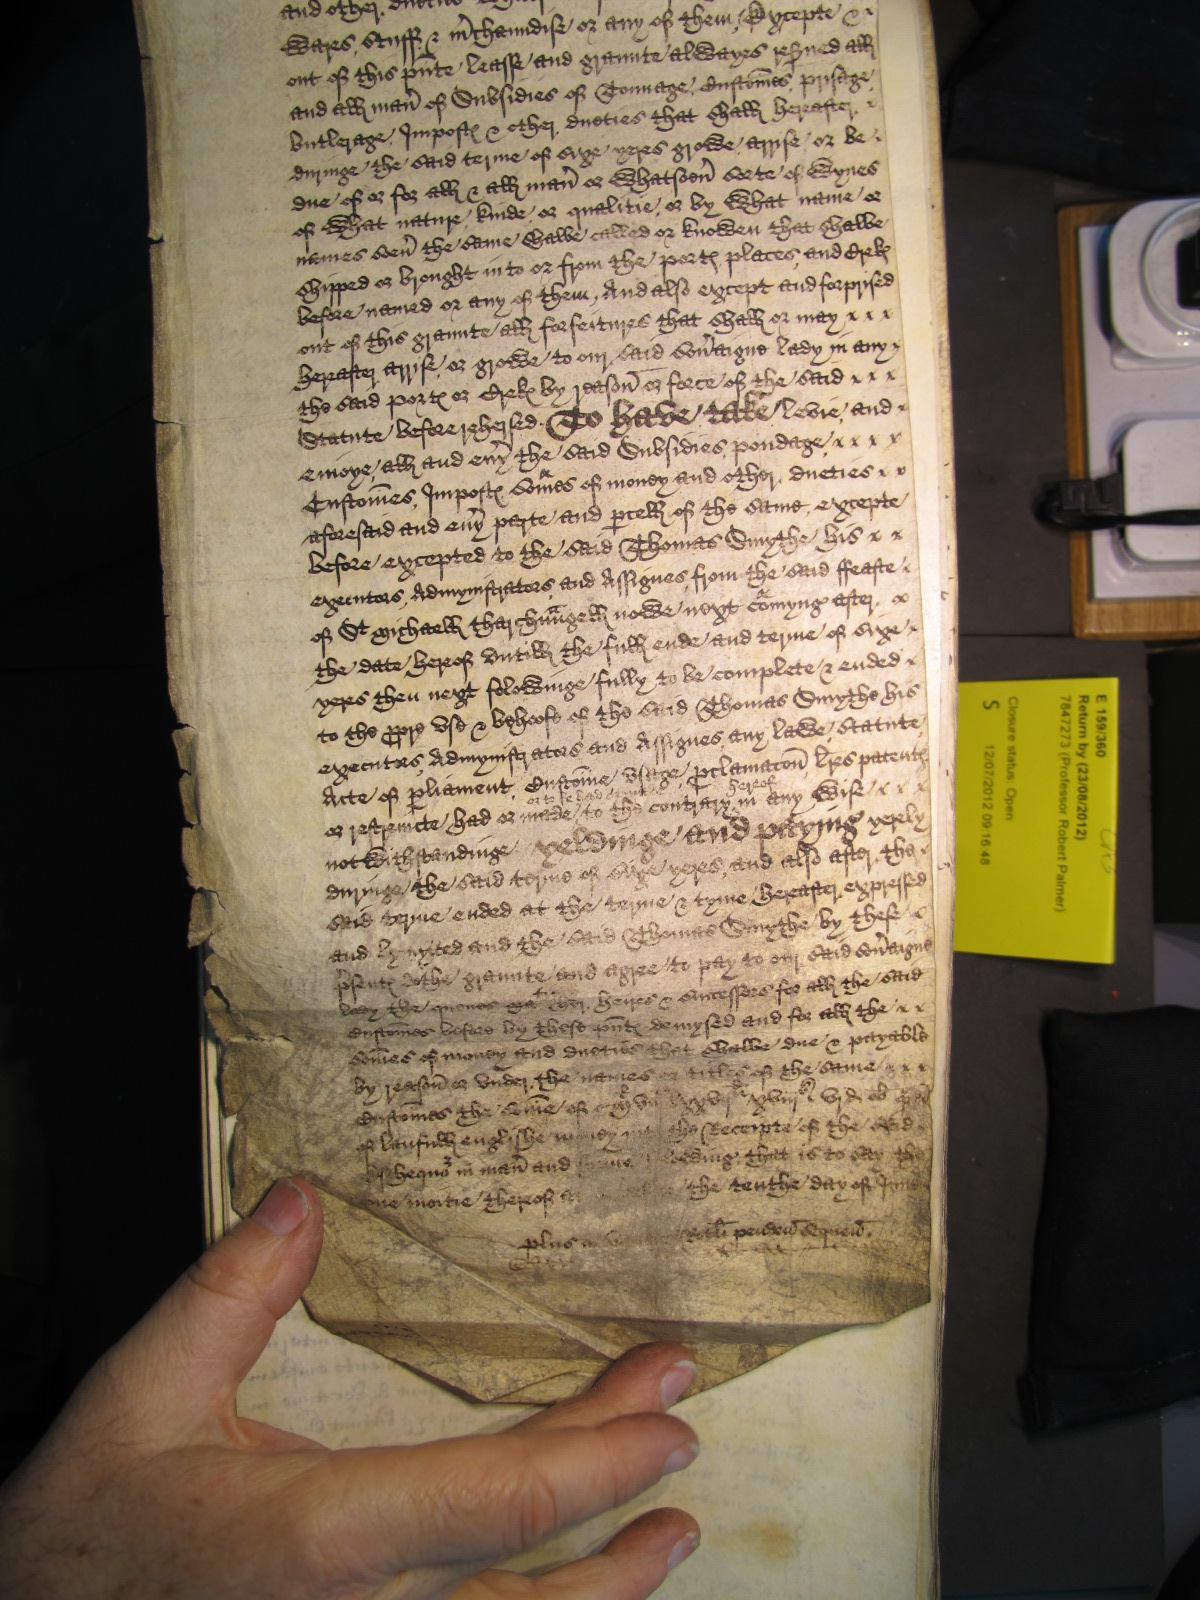 and other dueties
Wares, stuff & m̃chaundise or any of them, Excepte & x
out of this p̃nte leasse and graunte alwayes res̃ved all
and all man̄ of Subsidies of Tonnage, Custom̄es, prisage,
butlerage, Impostꝭ & other dueties that shall hereafter x
duringe the said terme of sixe yeres growe arrise or be x
due of or for all & all man̄ or whatsoeū sorte of Wynes
of what nature, kinde or qualitie, or by what name or
names soeū the same shalbe called or knowen that shalbe
shipped or brought into or from the portꝭ places, and Crekꝭ
before named or any of them, And also except and forprised
out of this graunte all forfeitures that shall or may x x x
hereafter arrise, or growe to our said soūaigne lady in any x
the said portꝭ or Crekꝭ by reason or force of the said x x x
Statute before rehersed. To have take levie, and x
enioye, all and eūy the said Subsidies, pondage, x x x x
Custom̄es, Impostꝭ som̄es of money and other dueties x x
aforesaid and eūy parte and p̱cell of the same, excepte
before excepted to the said Thomas Smythe his x x
executors, Admynistrators, and Assignes, from the said ffeaste x
of St Michaell tharchaungell nowe next comyng after x
the date hereof Untill the full ende and terme of sixe x
yeres then next folowinge fully to be complete & ended x
to the ꝓpre Use & behoofe of the said Thomas Smythe his
executors, Admynistrators and Assignes, any lawe, statute,
Acte of p̱liament, Custom̄e, usage, ꝓclamacon̄, l̃res patentꝭ
or restreincte had or made or to be had to the contrary hereof in any wise x x x
notwithstandinge yeldinge and paying yerly
duringe the said terme of sixe yeres, and also after the x
said terme ended at the terme & tyme hereafter expressed
and lymyted and the said Thomas Smythe by these x
p̃sentꝭ dothe graunte and agree to pay to our said soūaigne
lady the quenes matie her heires & successors for all the said
Custom̄es before by these p̃ntꝭ demysed and for all the x x
som̄es of money and dueties that shalbe due & payable
by reason or under the names or titles of the same x x x
Custom̄es the som̄e of xviijs vjd ob
of laufull englishe money the Receipte of the said
in man̄ and that is to say the
one moitie thereof the tenthe day of
plus rotul̃ penden̄ sequen̄.
E 159/360
Return by (23/08/2012)
7847273 (Professor Robert Palmer)
Closure status: Open
S 12/07/2012 09:16:48